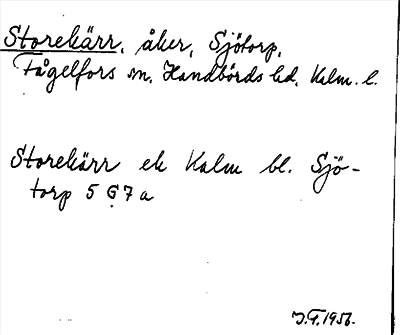 Storekärr, åker, Sjötorp,
Fågelfors sn. Handbörds hd. Kalm. l.
Storekärr ek Kalm bl. Sjö-
torp 5 G 7 a
J.F. 1956.